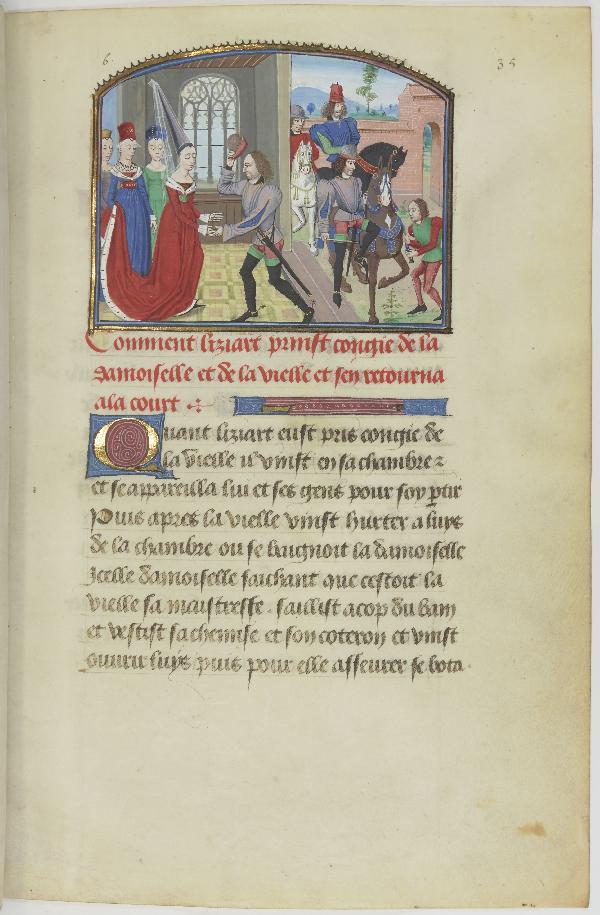 6.
35
Comment liziart prinst congie de la
damoiselle et de la vielle et sen retourna
a la court
Quant liziart eust pris congie de
la vielle il vinst en sa chambre
et se appareilla lui et ses gens pour soy ptir
Puis apres la vielle vinst hurter a luys
de la chambre ou se baignoit la damoiselle
Icelle damoiselle saichant que cestoit la
vielle sa maistresse. saillist acop du bain
et vestist sa chemise et son coteron et vinst
ouvrir luys puis pour elle asseurer se bota